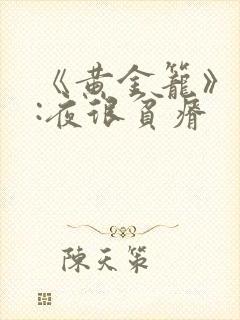 《黄金籠》
:夜很貧瘠
陳天策